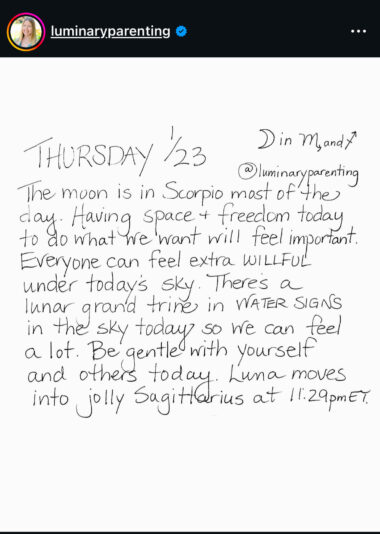 luminaryparenting
THURSDAY 1/23
☽ in ♏, and ♐
@luminaryparenting
The moon is in Scorpio most of the
day. Having space + freedom today
to do what we want will feel important.
Everyone can feel extra WILLFUL
under today's sky. There's a
lunar grand trine in WATER SIGNS
in the sky today so we can feel
a lot. Be gentle with yourself
and others today. Luna moves
into jolly Sagittarius at 11:29pm ET.